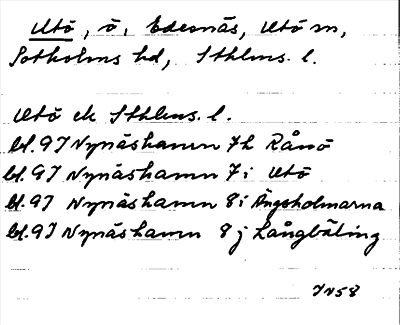 Utö, ö, Edesnäs, Utö sn,
Sotholms hd, Sthlms. l.
Utö ek Sthlms. l.
bl. 9I Nynäshamn 7h Rånö
bl. 9I Nynäshamn 7i Utö
bl. 9I Nynäshamn 8i Ängsholmarna
bl. 9I Nynäshamn 8j Långbäling
IN58